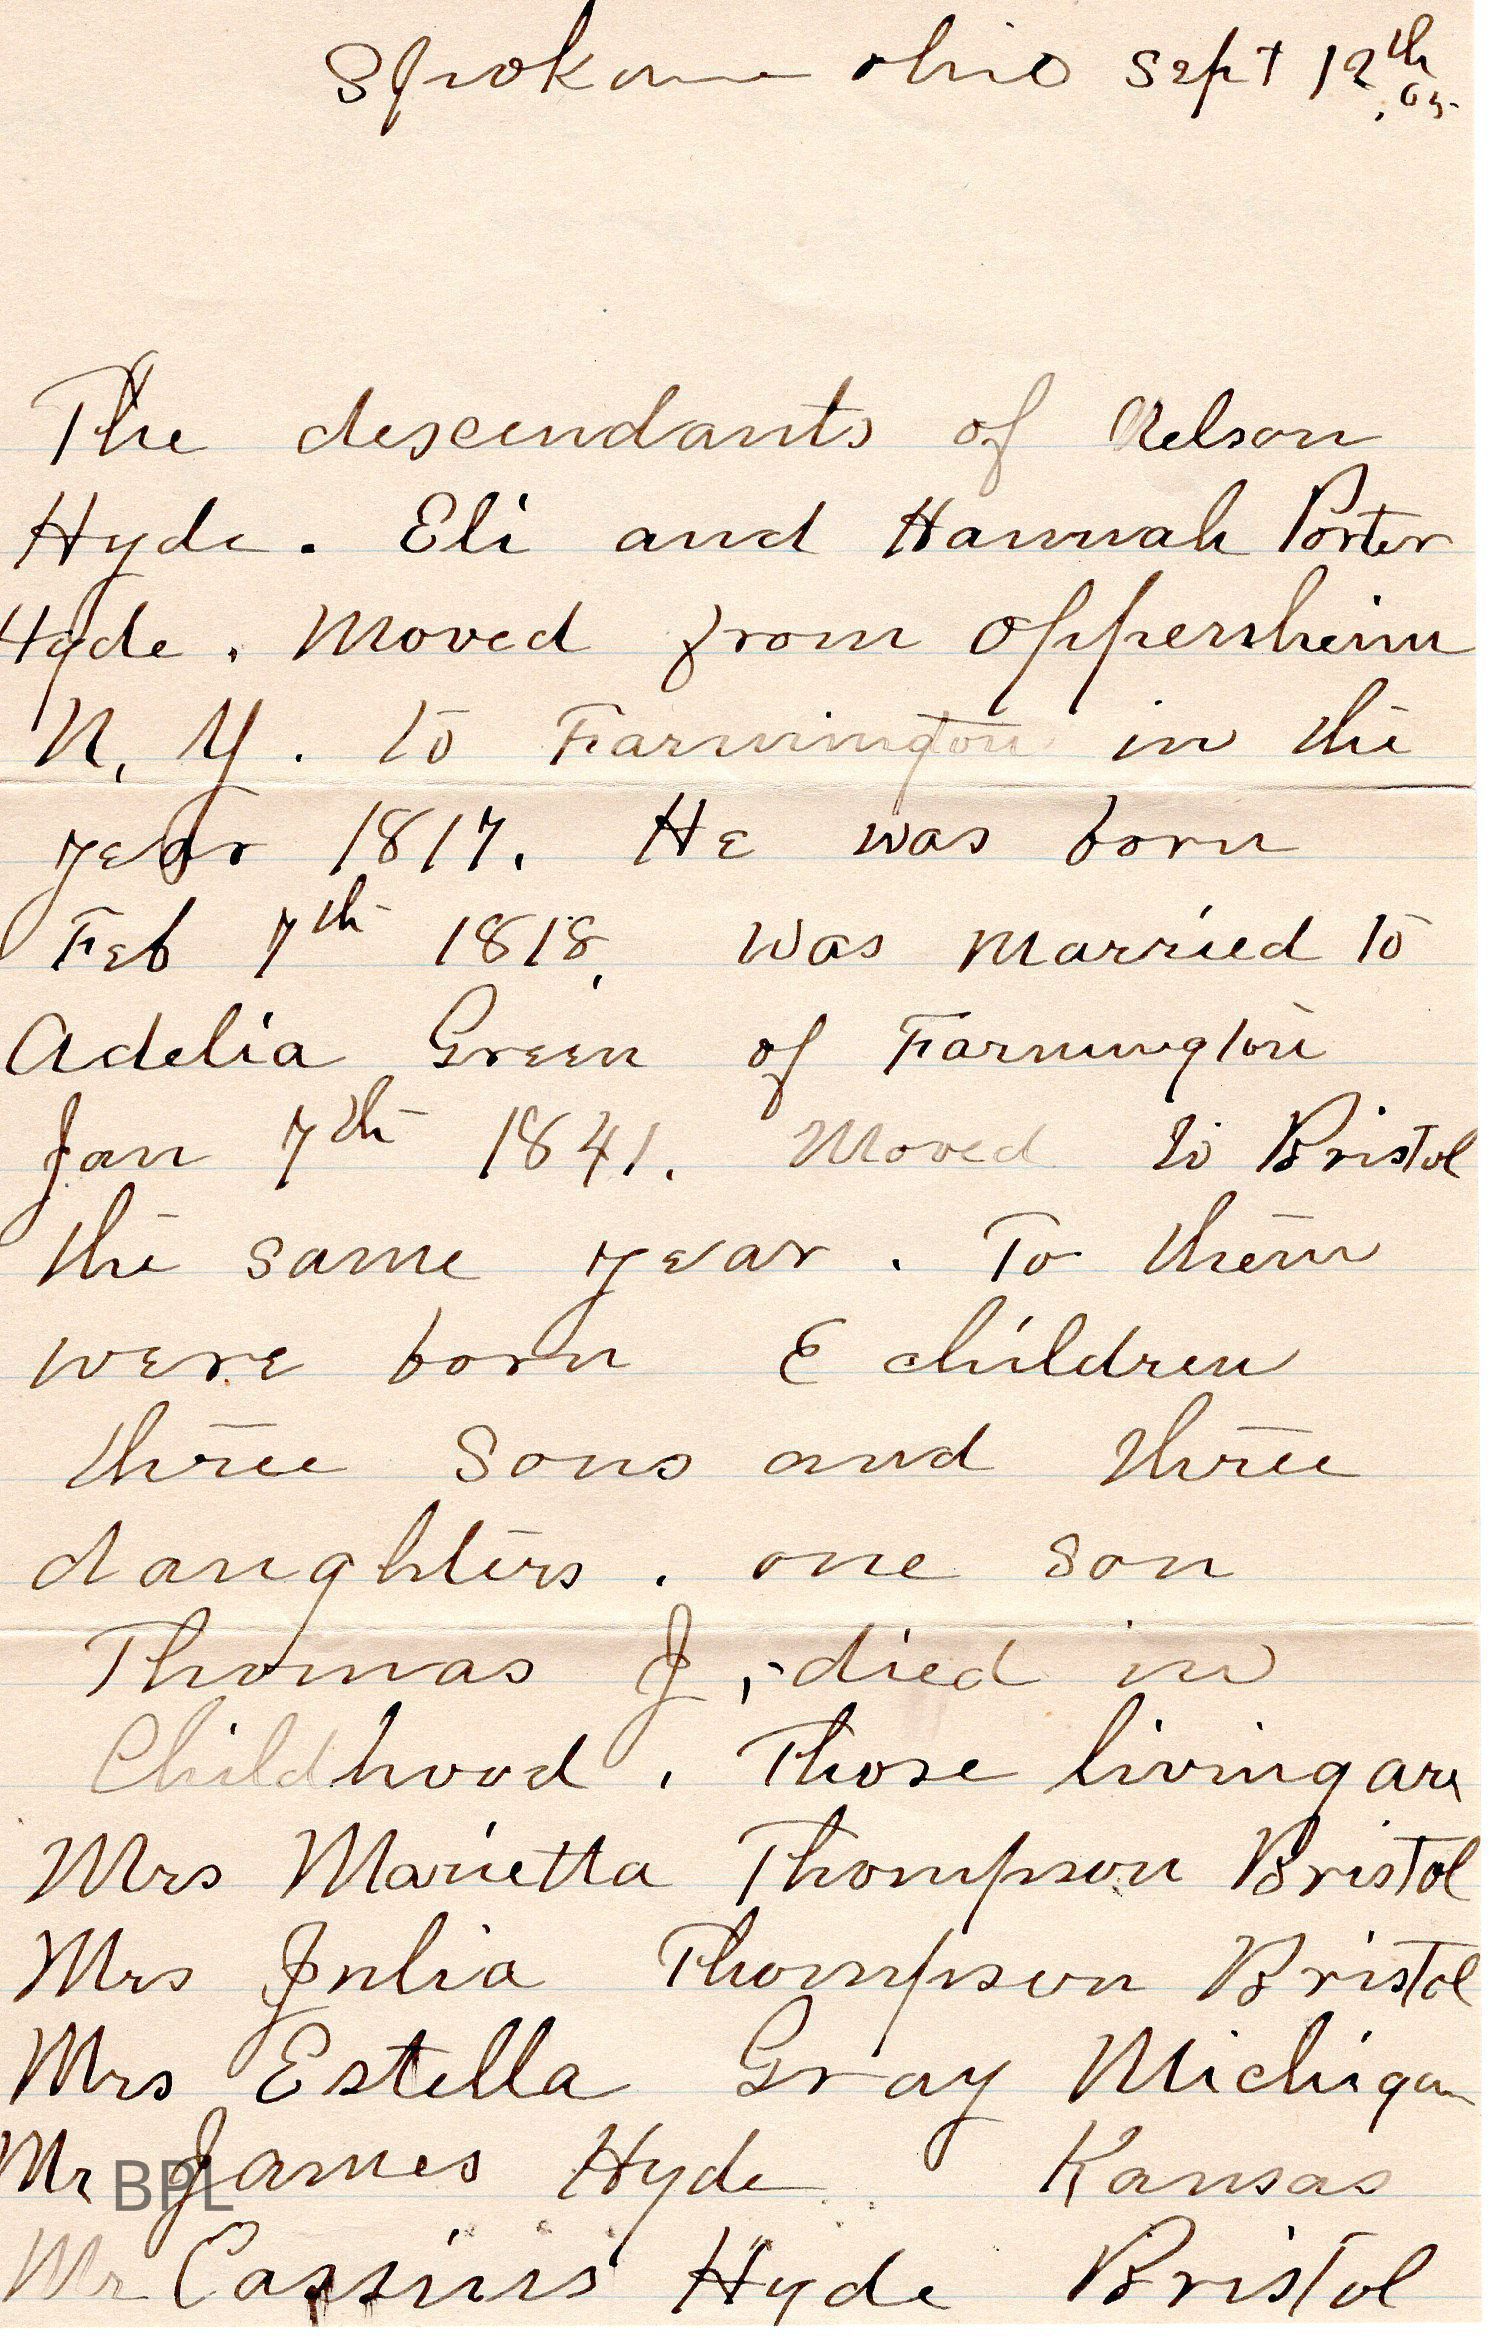 Spokane Ohio Sept 12th
, 05-
The descendants of Nelson
Hyde. Eli and Hannah Porter
Hyde. Moved from Oppersheim
N, Y. to Farmington in the
year 1817. He was born
Feb 7th 1818, was married to
Adelia Green of Farmington
Jan 7th 1841. Moved to Bristol
the same year. To them
were born 6 children
three sons and three
daughters. one son
Thomas J, died in
Childhood. Those living are
Mrs Marietta Thompson Bristol
Mrs Julia Thompson Bristol
Mrs Estella Gray Michigan
Mr James Hyde Kansas
BPL
Mr Cassius Hyde Bristol